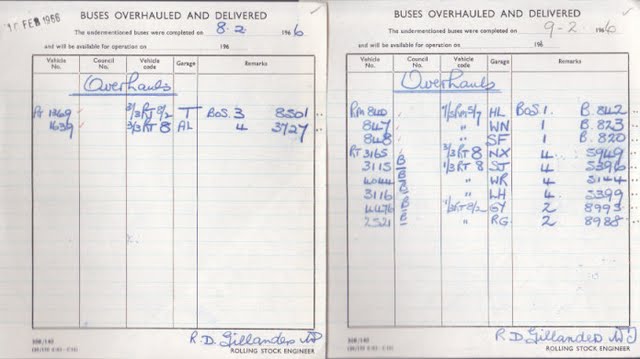 10 FEB 1966
BUSES OVERHAULED AND DELIVERED
The undermentioned buses were completed on 8-2 1966
and will be available for operation on 196
Vehicle No. Council No. Vehicle code Garage Remarks
Overhauls
RT 1369 T BOS. 3 8501
1639 3/3RT 8 AL 4 3727
R.D. Gillanders
ROLLING STOCK ENGINEER
BUSES OVERHAULED AND DELIVERED
The undermentioned buses were completed on 9-2- 1966
and will be available for operation on 196
Vehicle No. Council No. Vehicle code Garage Remarks
Overhauls
RM 840 HL BOS 1. B. 842
847 " WN 1 B. 823
848 " SF 1 B. 820
RT 3165 3/3RT 8 NX 4 5949
3115 B 1/3RT 8 SJ 4 5396
4044 B " WR 4 3144
3116 B " LH 4 5399
4476 B GY 2 8993
2521 B " RG 2 8988
R.D. Gillanders
ROLLING STOCK ENGINEER